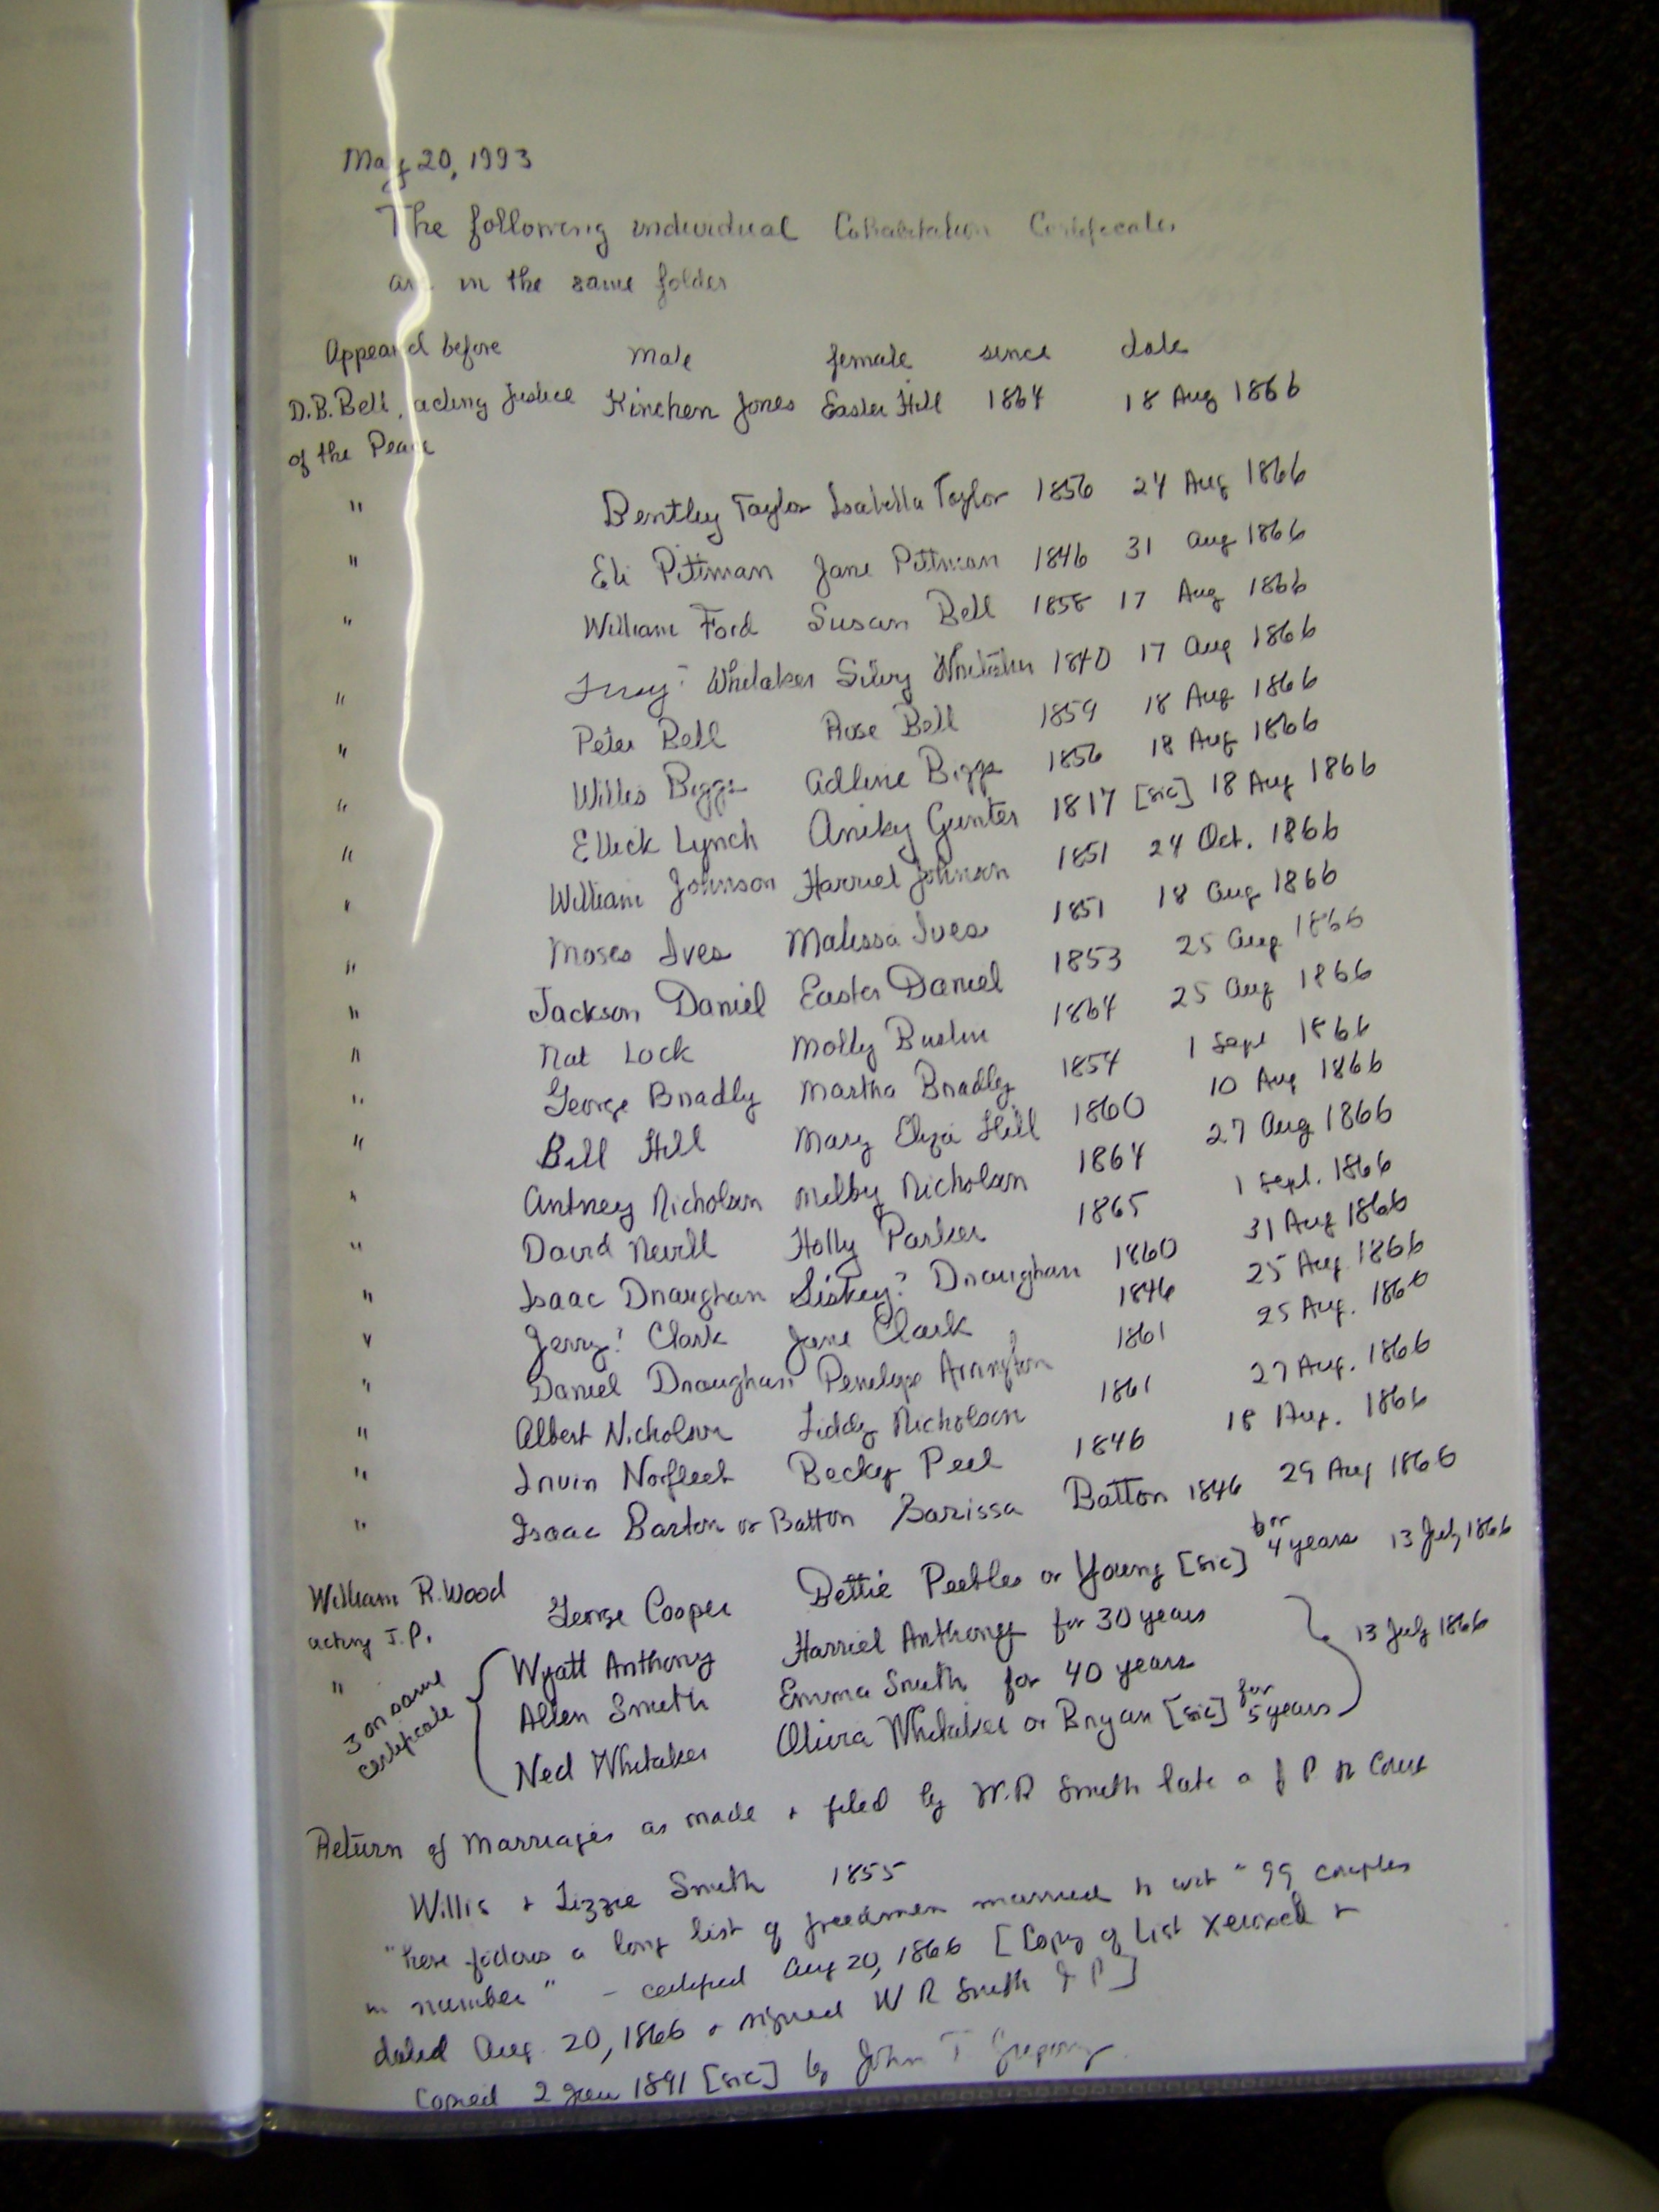 May 20, 1993
The following individual Cohabitation Certificates
are in the same folder
Appeared before male female since date
D.B. Bell, acting Justice Kinchen Jones Easter Hill 1864 18 Aug 1866
of the Peace
" Bentley Taylor Isabella Taylor 1856 24 Aug 1866
" Eli Pittman Jane Pittman 1846 31 Aug 1866
" William Ford Susan Bell 1858 17 Aug 1866
" Whitaker Silvy Whitaker 1840 17 Aug 1866
" Peter Bell Rose Bell 1859 18 Aug 1866
" Willis Biggs Adline Biggs 1856 18 Aug 1866
" Ellick Lynch Aniky Gunter 1817 [sic] 18 Aug 1866
" William Johnson Harriel Johnson 1851 24 Oct. 1866
" Moses Ives Malissa Ives 1851 18 Aug 1866
" Jackson Daniel Easter Daniel 1853 25 Aug 1866
" Nat Lock Molly 1864 25 Aug 1866
" George Bradly Martha Bradly 1854 1 Sept 1866
" Bill Hill Mary Eliza Hill 1860 10 Aug 1866
" Antney Nicholson Milby Nicholson 1864 27 Aug 1866
" David Nevill Holly Parker 1865 1 Sept. 1866
" Isaac Draughan Siskey? Draughan 1860 31 Aug 1866
" Jerry? Clark Jane Clark 1846 25 Aug. 1866
" Daniel Draughan Penelope Arrington 1861 25 Aug. 1866
" Albert Nicholson Liddy Nicholson 1861 27 Aug. 1866
" Irvin Norfleet Becky Peel 1846 18 Aug. 1866
" Isaac Barton or Batton Barissa Batton 1846 29 Aug 1866
William R. Wood George Cooper Bettie Peebles or Young [sic] for 4 years 13 July 1866
acting J.P.
" Wyatt Anthony Harriel Anthony for 30 years 13 July 1866
3 on same Allen Smith Emma Smith for 40 years
certificate Ned Whitaker Olivia Whitaker or Bryan [sic] for 5 years
Return of Marriages as made + filed by W.R Smith late a J P to Court
Willis + Lizzie Smith 1855
"here follows a long list of freedmen married to wit " 99 couples
in number" - certified Aug 20, 1866 [Copy of List xeroxed +
dated Aug. 20, 1866 + signed W R Smith J P]
Copied 2 Jan 1891 [sic] by John T. Gregory